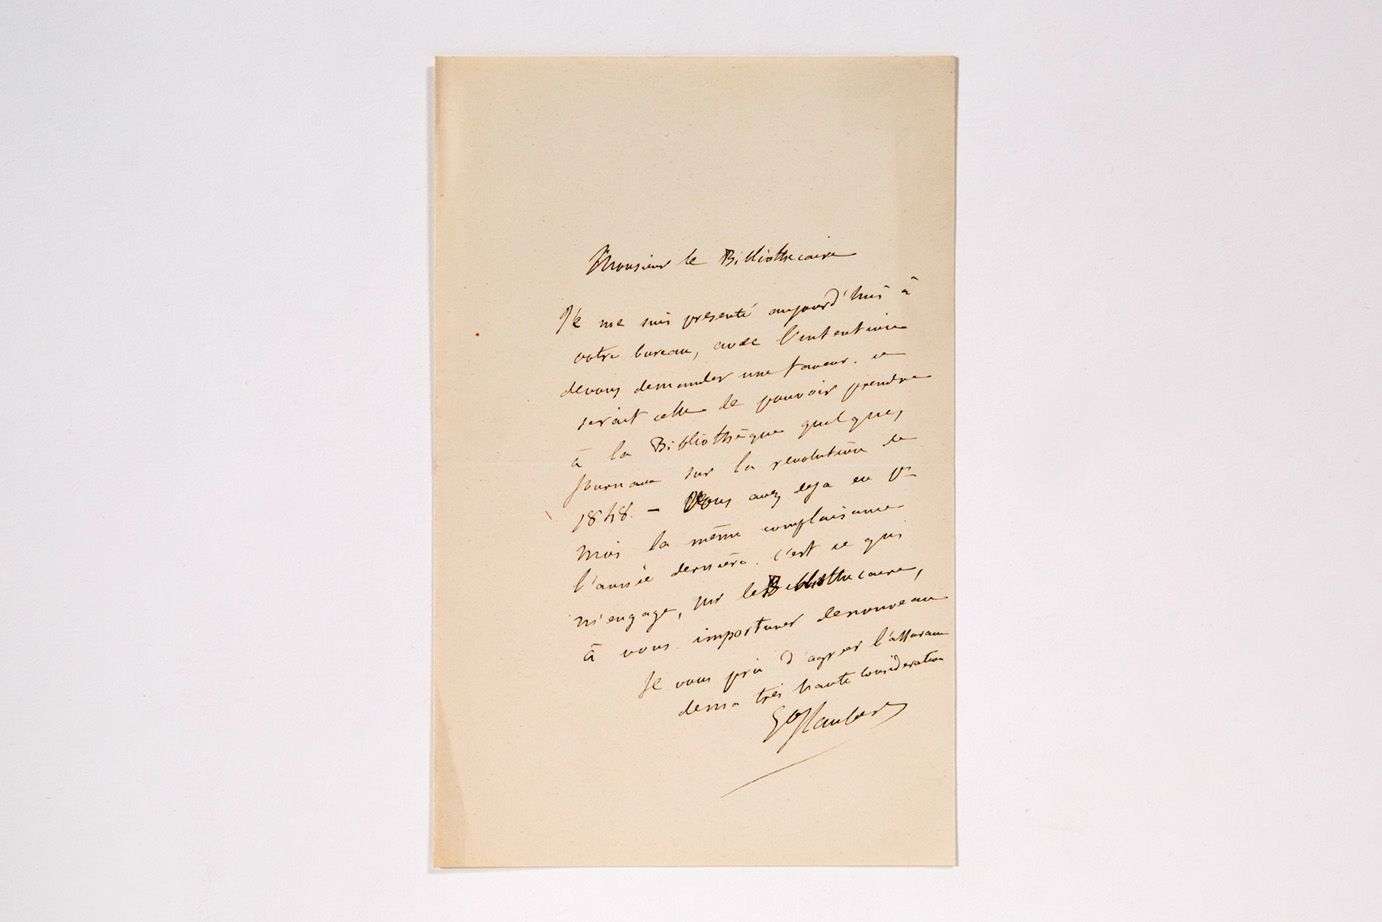 Monsieur le Bibliothécaire
Je me suis présenté aujourd'hui à
votre bureau, avec l'intention
de vous demander une faveur. ce
serait celle de pouvoir prendre
à la Bibliothèque quelques
journaux sur la révolution de
1848. – Vous avez déjà eu pr
moi la même complaisance
l'année dernière. c'est ce qui
m'engage, le Bibliothécaire,
à vous importuner de nouveau
Je vous prie d'agréer l'assurance
de ma très haute considération
Gve Flaubert